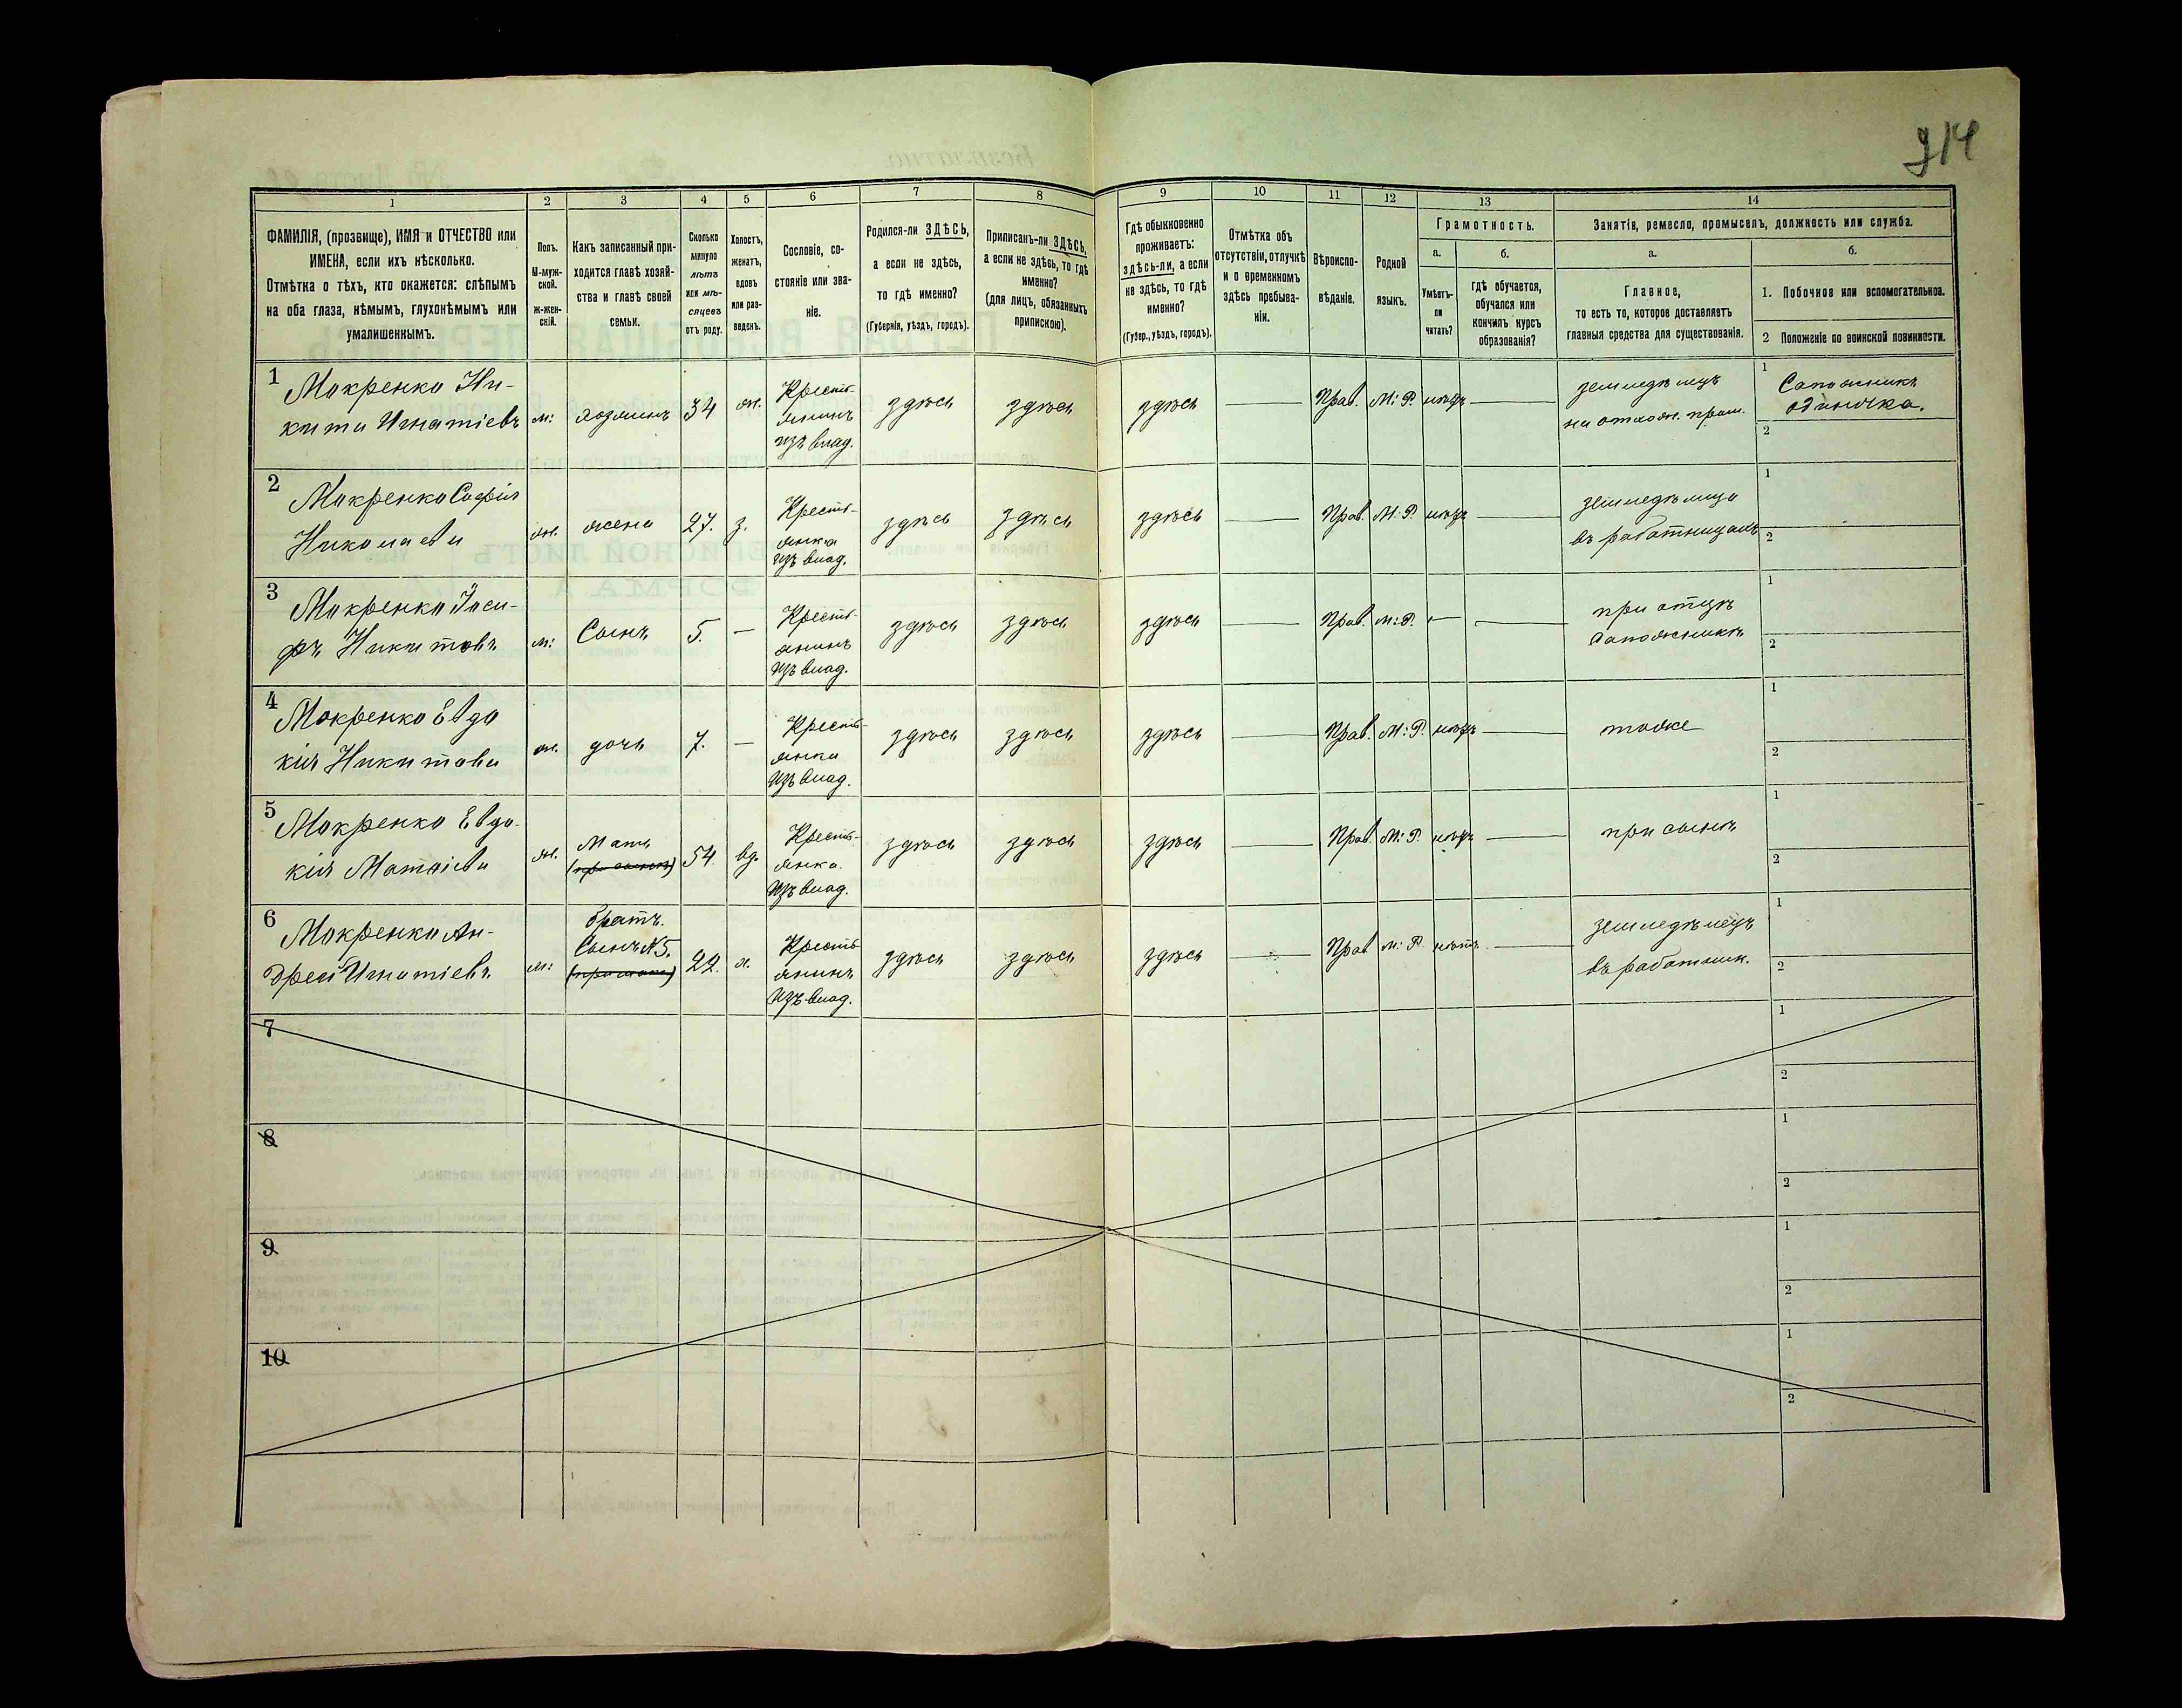 914
1
2
3
4
5
6
7
8
9
10
11
12
13
14
ФАМИЛІЯ, (прозвище), ИМЯ и ОТЧЕСТВО или
ИМЕНА, если ихъ нѣсколько.
Отмѣтка о тѣхъ, кто окажется: слѣпымъ
на оба глаза, нѣмымъ, глухонѣмымъ или
умалишеннымъ.
Полъ.
М-муж-
ской.
ж-жен-
скій.
Какъ записанный при-
ходится главѣ хозяй-
ства и главѣ своей
семьи.
Сколько
минуло
лѣтъ
или мѣ-
сяцевъ
отъ роду.
Холостъ,
женатъ,
вдовъ
или раз-
веденъ.
Сословіе, со-
стояніе или зва-
ніе.
Родился-ли ЗДѢСЬ,
а если не здѣсь,
то гдѣ именно?
(Губернія, уѣздъ, городъ).
Приписанъ-ли ЗДѢСЬ,
а если не здѣсь, то гдѣ
именно?
(для лицъ, обязанныхъ
припискою).
Гдѣ обыкновенно
проживаетъ:
здѣсь-ли, а если
не здѣсь, то гдѣ
именно?
(Губер., уѣздъ, городъ).
Отмѣтка объ
отсутствіи, отлучкѣ
и о временномъ
здѣсь пребыва-
ніи.
Вѣроиспо-
вѣданіе.
Родной
языкъ.
Грамотность.
а.
Умѣетъ-
ли
читать?
б.
гдѣ обучается,
обучался или
кончилъ курсъ
образованія?
Занятія, ремесло, промыселъ, должность или служба.
а.
Главное,
то есть то, которое доставляетъ
главныя средства для существованія.
б.
1. Побочное или вспомогательное.
2 Положеніе по воинской повинности.
1
Макренко Ни-
кита Игнатіевъ
м:
хозяинъ
34
ж.
Кресть-
янинъ
изъ влад.
здѣсь
здѣсь
здѣсь
Прав.
М: Р.
нѣтъ
земледѣлецъ
на отхож. пром.
1
Сапожникъ
одиночка.
2
2
Макренко Софія
Николаева
ж.
жена
27.
з.
Кресть-
янка
изъ влад.
здѣсь
здѣсь
здѣсь
Прав.
М: Р.
нѣтъ
земледѣлица
въ работницахъ
1
2
3
Макренко Іоси-
фъ Никитовъ
м:
Сынъ
5.
—
Кресть-
янинъ
изъ влад.
здѣсь
здѣсь
здѣсь
Прав.
м: Р.
—
при отцѣ
сапожникѣ
1
2
4
Макренко Евдо
кія Никитова
ж.
дочь
7.
—
Кресть-
янка
изъ влад.
здѣсь
здѣсь
здѣсь
Прав.
М: Р.
нѣтъ
тоже
1
2
5
Макренко Евдо-
кія Матвіева
ж.
Мать
(при сынѣ)
54
вд.
Кресть-
янка.
изъ влад.
здѣсь
здѣсь
здѣсь
Прав.
М: Р.
нѣтъ
при сынѣ
1
2
6
Макренко Ан-
дрей Игнатіевъ
м:
братъ.
Сынъ N5.
22.
х.
Кресть
янинъ
изъ влад.
здѣсь
здѣсь
здѣсь
Прав
м: Р
нѣтъ
земледѣлецъ
въ работник.
1
2
7
1
2
8
1
2
9
1
2
10
1
2